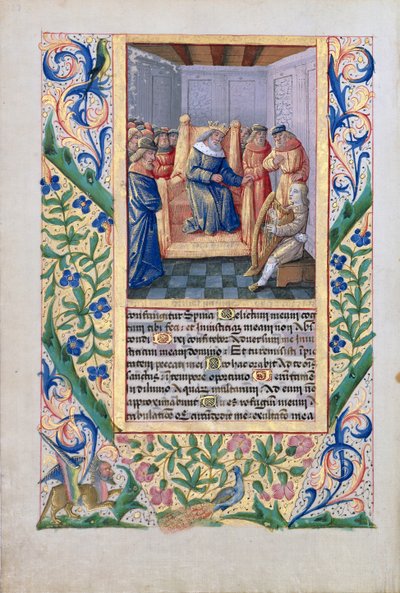 configitur Spina Delictum meum cog
nitum tibi feci: et Iniustitiam meam non Abs
condi Dixi confitebor Adversum me Iniu
stitiam meam domino: Et tu remisisti ipie
tatem peccati mei Pro hac orabit Ad te ois
sanctus In tempore oportuno Verumtame
In diluvio Aquarum multarum Ad eum no
Approximabunt Tu es refugium meum a
tribulatioe q Circundedit me: exultatio mea